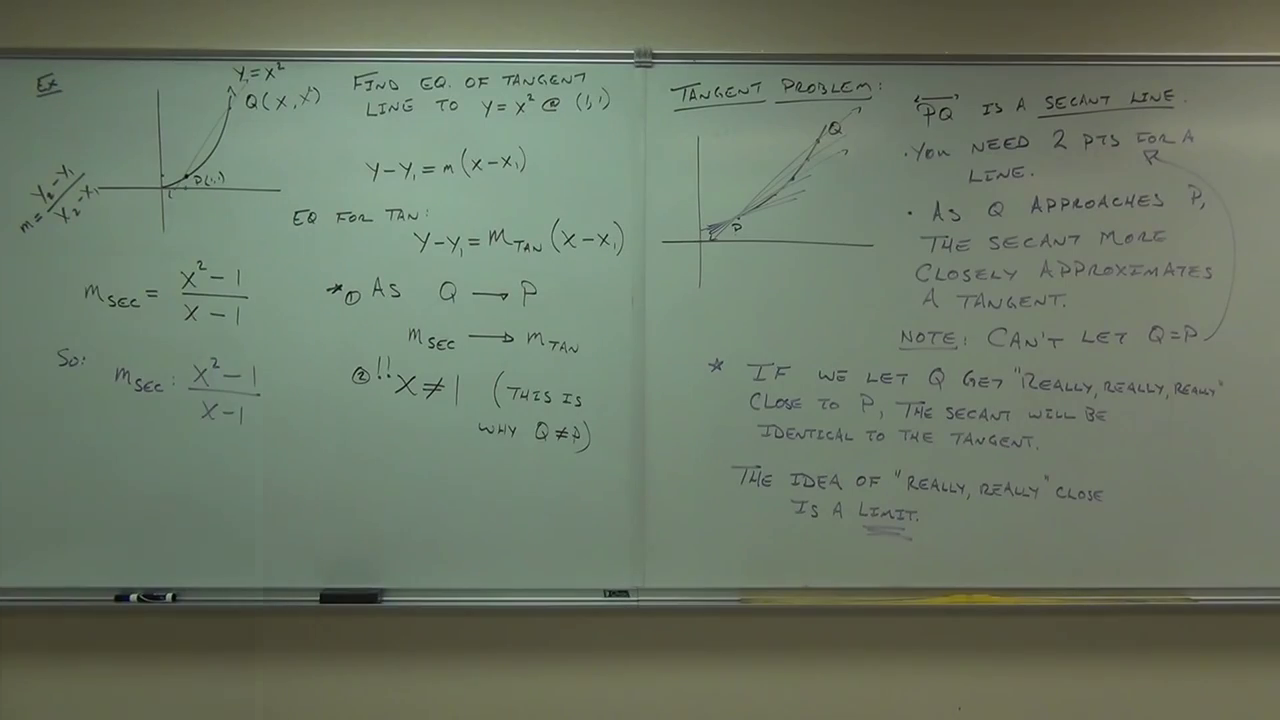 Ex
y = x²
Q(x, x²)
P(1,1)
1
m = y₂-y₁ / x₂-x₁
FIND EQ. OF TANGENT
LINE TO y = x² @ (1,1)
y-y₁ = m(x-x₁)
EQ FOR TAN:
y-y₁ = m_TAN (x-x₁)
m_SEC = x²-1 / x-1
* ① AS Q → P
m_SEC → m_TAN
So: m_SEC : x²-1 / x-1
② !! x ≠ 1 (THIS IS
WHY Q ≠ P)
TANGENT PROBLEM:
Q
P
PQ IS A SECANT LINE.
· YOU NEED 2 PTS FOR A
LINE.
· AS Q APPROACHES P,
THE SECANT MORE
CLOSELY APPROXIMATES
A TANGENT.
NOTE: CAN'T LET Q=P
* IF WE LET Q GET "REALLY, REALLY, REALLY"
CLOSE TO P, THE SECANT WILL BE
IDENTICAL TO THE TANGENT.
THE IDEA OF "REALLY, REALLY" CLOSE
IS A LIMIT.